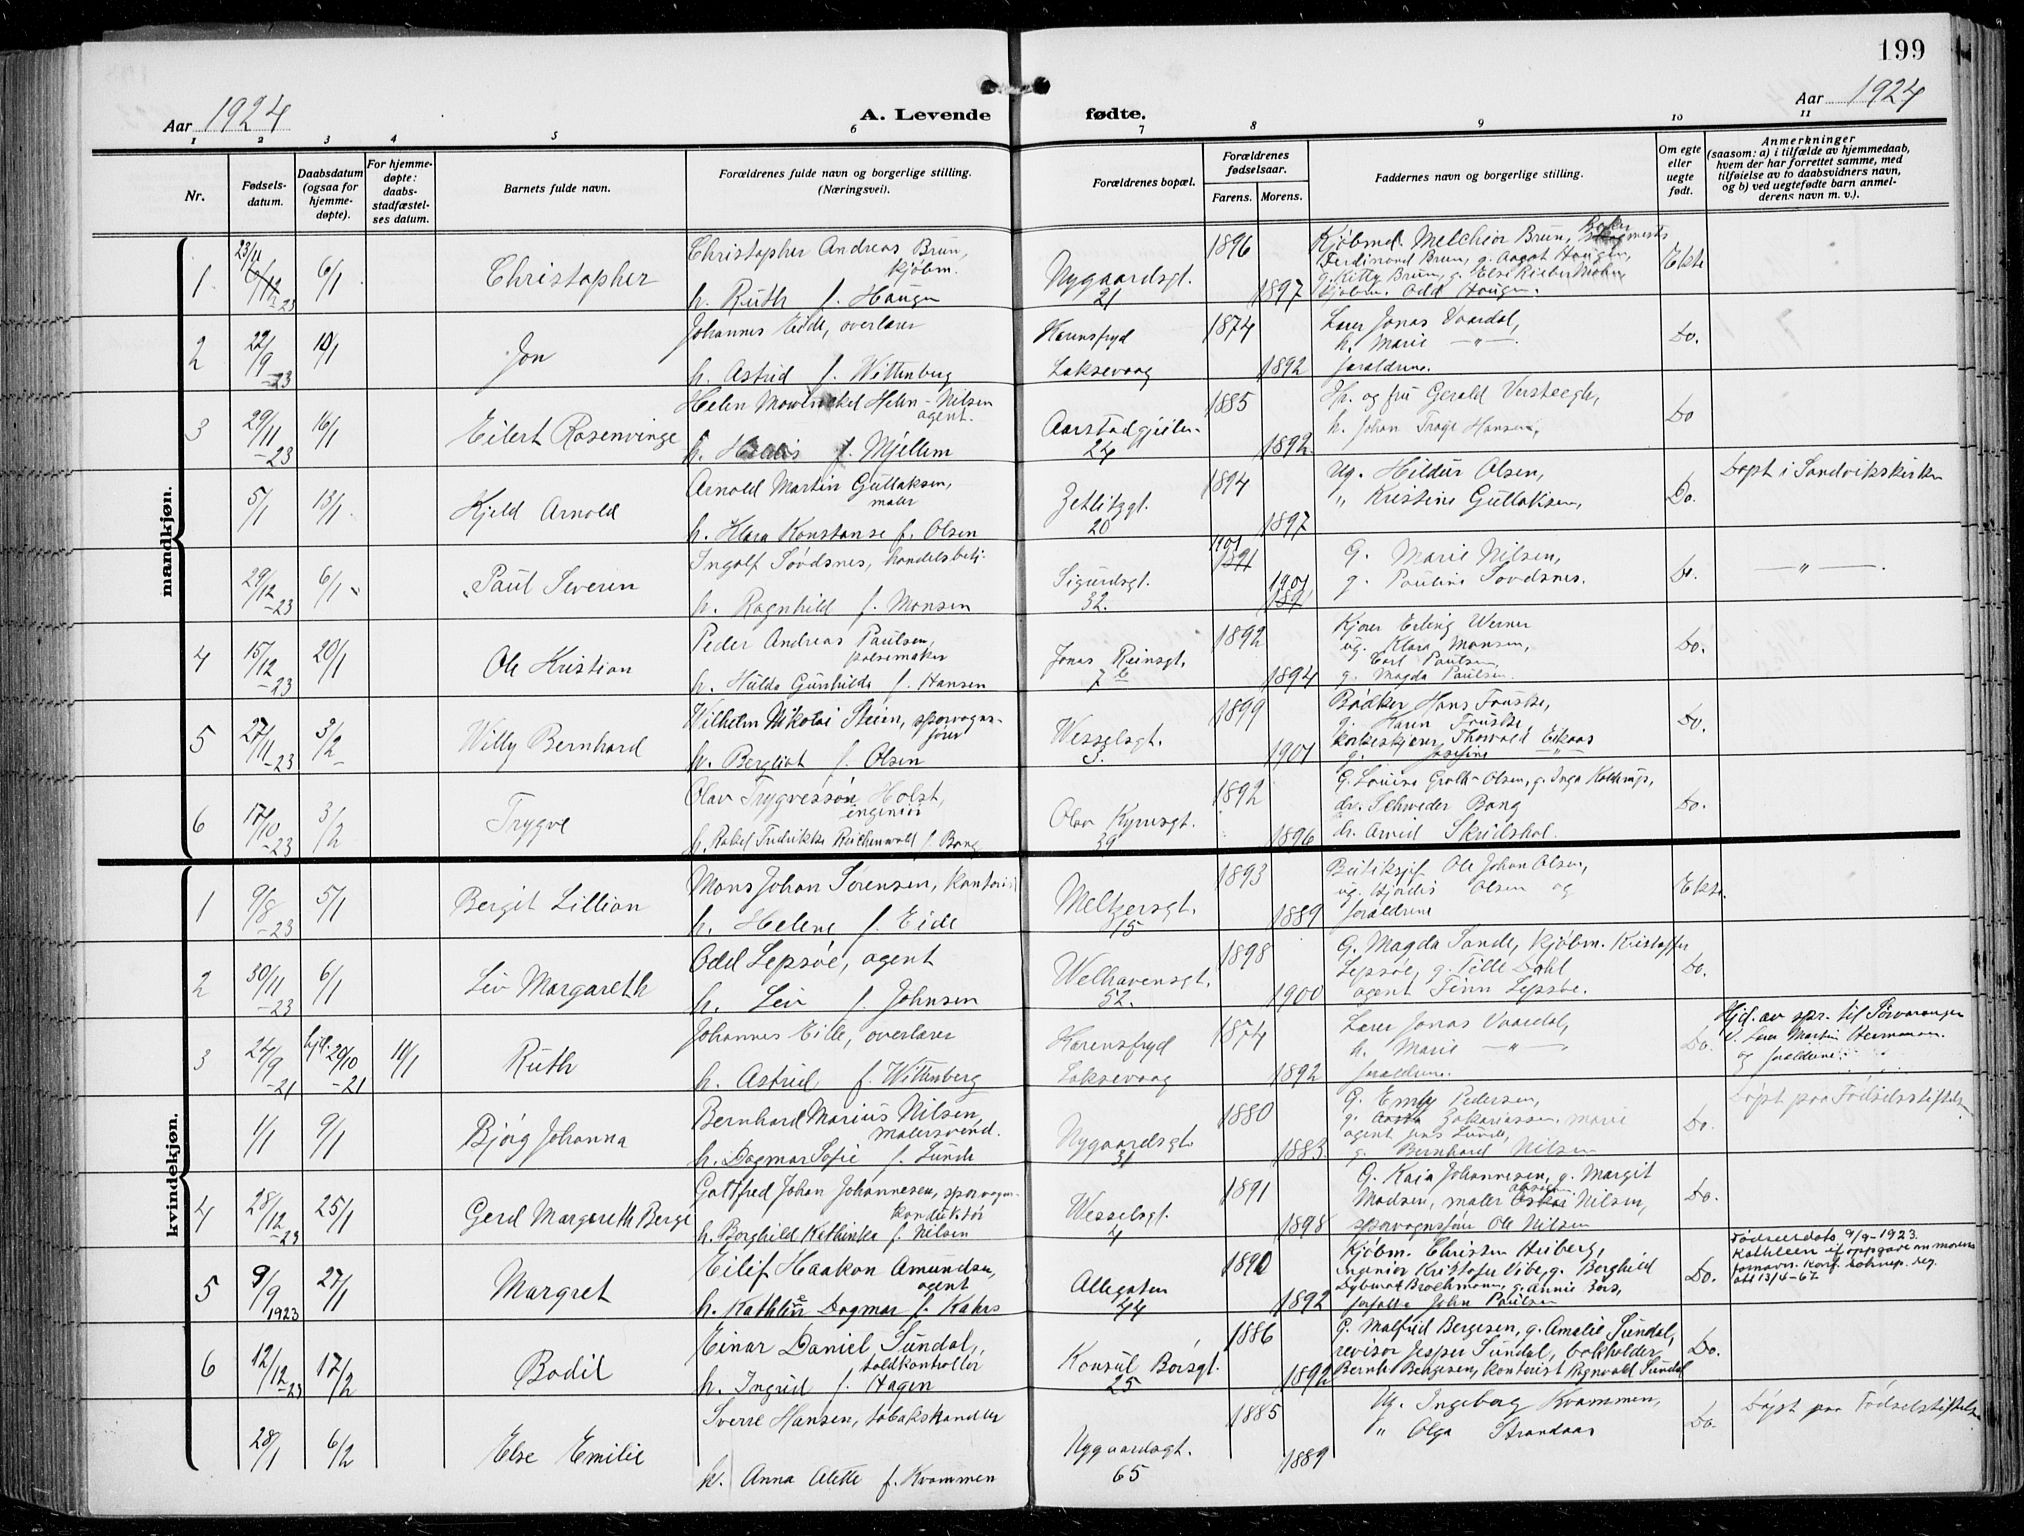 199
Aar 1924
A. Levende
fødte.
Aar 1924
1 2 3 4 5 6 7 8 9 10 11
Nr.
Fødsels-
datum.
Daabsdatum
(ogsaa for
hjemme-
døpte).
For hjemme-
døpte:
daabs-
stadfæstel-
ses datum.
Barnets fulde navn.
Forældrenes fulde navn og borgerlige stilling.
(Næringsvei).
Forældrenes bopæl.
Forældrenes
fødselsaar.
Farens. Morens.
Faddernes navn og borgerlige stilling.
Om egte
eller
uegte
født.
Anmerkninger
(saasom: a) i tilfælde av hjemmedaab,
hvem der har forrettet samme, med
tilføielse av to daabsvidners navn,
og b) ved uegtefødte barn anmel-
derens navn m. v.).
mandkjøn.
1 23/11 6/12 -23 6/1 Christopher
Christopher Andreas Brun,
kjøbm.
h. Ruth f. Haugen
Nygaardsgt.
21
1896 1897
Kjøbmd. Melchior Brun,
Ferdinand Brun, g. Aagot Haugen,
g. Kitty Brun, g. Else Rieber Mohn,
kjøbm. Odd Haugen.
Ekte
2 22/9 -23 10/1 Jon
Johannes Eide, overlærer
h. Astrid f. Wittenberg
Karensfryd
Laksevaag
1874 1892
Lærer Jonas Vaardal,
h. Marie —"—
forældrene.
Do.
3 29/11 -23 16/1 Eilert Rosenvinge
Helen Mowinckel Helm-Nilsen
agent.
h. f. Mjellem
Aarstadgjeilen
24
1885 1892
Hr. og fru Gerald Versteegh,
h. Johan Trage Hansen,
Do
5/1 13/1 Kjeld Arnold
Arnold Martin Gullaksen,
maler
h. Klara Konstanse f. Olsen
Zetlitzgt.
20
1894 1897
Ug. Hildur Olsen,
" Kristine Gullaksen,
Do.
Døpt i Sandvikskirken
29/12 -23 6/1 Paul Severin
Ingolf Søvdsnes, handelsbetj.
h. Ragnhild f. Monsen
Sigurdsgt.
32.
1901 1901
G. Marie Nilsen,
g. Pauline Søvdsnes.
Do.
—"—
4 15/12 -23 20/1 Ole Kristian
Peder Andreas Paulsen,
pølsemaker
h. Hulda Gunhilda f. Hansen
Jonas Reinsgt.
7 b
1892 1894
Kjører Erling Werner
ug. Klara Monsen,
Carl Paulsen,
g. Magda Paulsen.
Do.
5 27/11 -23 3/2 Willy Bernhard
Wilhelm Nikolai Steen, sporvogns-
fører
h. Bergliot f. Olsen
Wesselsgt.
3.
1899 1901
Bødker Hans Fauske,
g. Karen Fauske,
Thorvald
g. Josefine —"—
Do.
6 17/10 -23 3/2 Trygve
Olav Trygvessøn Holst,
ingeniør
h. Rakel Fredrikke Reichenwald f. Bang
Olav Kyrresgt.
39
1892 1896
G. Louise Groth-Olsen, g. Inga
dr. Schweder Bang
dr. Arneid
Do.
kvindekjøn.
1 9/8 -23 5/1 Bergit Lillian
Mons Johan Sørensen, kontorist
h. Helene f. Eide
Meltzersgt.
15
1893 1889
Butiksjef Ole Johan Olsen,
ug. Hjørdis Olsen og
forældrene
Ekte.
2 30/11 -23 6/1 Liv Margareth
Odd Lepsøe, agent
h. Liv f. Johnsen
Welhavensgt.
52.
1898 1900
G. Magda Sande, kjøbm. Kristoffer
Lepsøe, g. Tille Dahl,
agent Finn Lepsøe.
Do.
3 24/9 -21 hjd. 20/10 -21 10/1 Ruth
Johannes Eide, overlærer
h. Astrid f. Wittenberg
Karensfryd
Laksevaag
1874 1892
Lærer Jonas Vaardal,
h. Marie —"—
forældrene.
Do.
Hjd. av spr. til Sørvaranger
v. lærer Martin Hermansen
og forældrene.
1/1 9/1 Bjørg Johanna
Bernhard Marius Nilsen,
malersvend.
h. Dagmar Sofie f. Lunde
Nygaardsgt.
31
1880 1883
G. Emly Pedersen,
g. Zakariassen, Marie
agent Jens Lunde,
g. Bernhard Nilsen
Do.
Døpt paa Fødselsstiftelsen
4 28/12 -23 25/1 Gerd Margareth Berge
Gottfred Johan Johannesen, sporvogns-
konduktør
h. Borghild Kathinka f. Nilsen
Wesselsgt.
4
1891 1898
G. Kaia Johannesen, g. Margit
Madsen, maler Nilsen,
sporvognsfører Ole Nilsen
Do.
5 9/9 1923 27/1 Margret
Eilif Haakon Amundsen,
agent
h. Kathleen Dagmar f. Kahrs
Allegaten
44
1890 1892
Kjøbm. Christen Huiberg,
Ingeniør Kristofer Vibe, g. Borghild
Dybwad Brochmann, g. Annie
John Paulsen
Do.
Fødselsdato 9/9-1923.
Kathleen if. oppgave om morens
fornavn. Korr.
13/4-67.
6 12/12 -23 17/2 Bodil
Einar Daniel Sundal,
toldkontrollør
h. Ingrid f. Hagen
Konsul Børsgt.
25
1886 1892
G. Malfrid Bergesen, g. Amalie Sundal,
revisor Jesper Sundal, bokholder
Bernh. Bergesen, kontorist Ragnvald Sundal
Do.
28/1 6/2 Else Emilie
Sverre Hansen, tobakshandler
h. Anna Alette f. Kvammen
Nygaardsgt.
65
1885 1889
Ug. Ingeborg Kvammen,
" Olga Strandaas
Do.
Døpt paa Fødselsstiftelsen